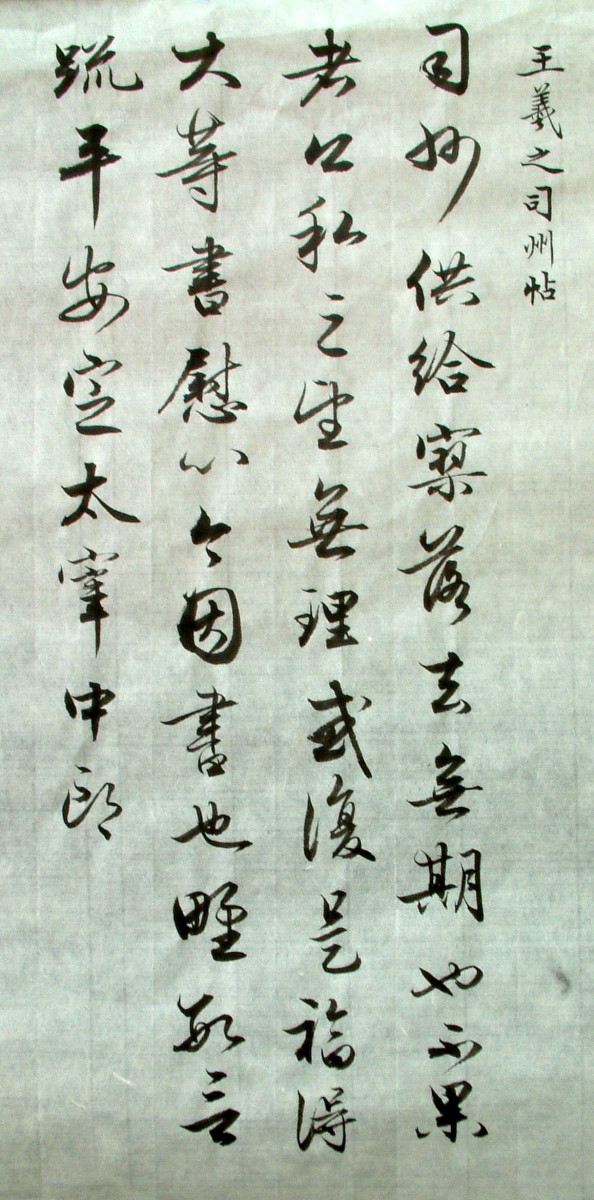 王羲之司州帖
司州供給寥落去無期也不果
者公私之望無理或復是福得
大等書慰心今因書也野數言
疏平安定太宰中郎